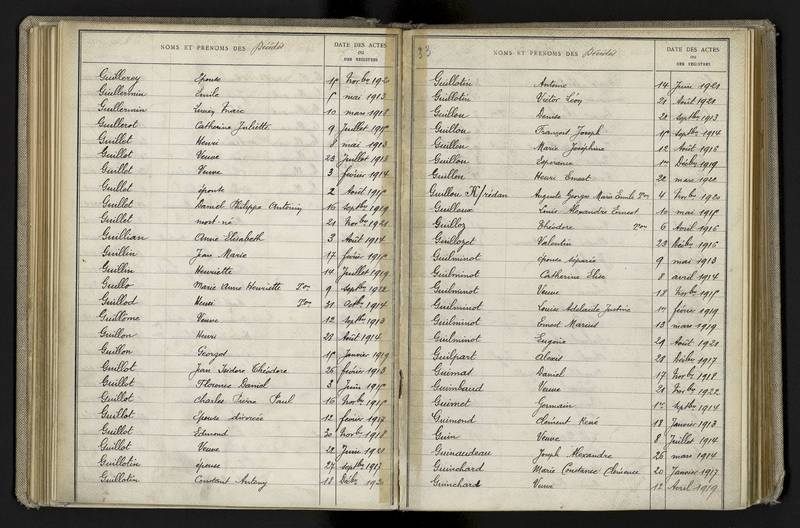 NOMS ET PRÉNOMS DES Décédés
DATE DES ACTES
OU
DES REGISTRES
Guillerey Epouse Novbre 192
Guillermin Emile mai 1913
Guillermin Louis Marc 10 mars 1918
Guillerot Catherine Juliette 9 Juillet
Guillet Henri 8 mai 1913
Guillot Veuve 23 Juillet 1918
Guillot Veuve 3 février 1914
Guillot épouse 2 Août
Guillot Daniel Philippe Antoine 16 septbre 1919
Guillet mort-né 21 Novbre 1921
Guillian Anne Elisabeth 3 Août 1914
Guillin Jean Marie 17 février
Guillin Henriette 14 Juillet 1919
Guillo Marie Anne Henriette 9 septbre 1922
Guillod Henri 31 Octbre 1914
Guillome Veuve 12 septbre 1913
Guillon Henri 28 Août 1914
Guillon Georges Janvier 1919
Guillot Jean Isidore Théodore 26 février 1913
Guillot Florence Daniel 3 Juin
Guillot Charles Pierre Paul 16 Novbre
Guillot Epouse divorcée 12 février 1917
Guillot Edmond 30 Novbre 1918
Guillot Veuve 22 Juin 1921
Guillotin épouse 27 septbre 1917
Guillotin Constant Antony 18 Débre 192
NOMS ET PRÉNOMS DES Décédés
DATE DES ACTES
OU
DES REGISTRES
Guillotin Antoine 14 Juin 1920
Guillotin Victor Léon 21 Août 1920
Guillou Denise 22 septbre 1913
Guillou François Joseph septbre 1914
Guillou Marie Joséphine 12 Août 1916
Guillou Espérance 1er Décbre 1919
Guillou Henri Ernest 22 mars 1920
Guillou K/rédan Auguste Georges Marie Emile 4 Novbre 1920
Guilloux Louis Alexandre Ernest 10 mai
Guilloz Théodore 6 Avril 1916
Guillozet Valentin 23 Décbre 1916
Guilminot épouse séparée 9 mai 1913
Guilminot Catherine Elise 8 avril 1914
Guilminot Veuve 18 Novbre
Guilminot Louise Adelaide Justine 1er février 1919
Guilminot Ernest Marius 13 mars 1919
Guilminot Eugénie 29 Août 1920
Guilpart Alexis 28 Décbre 1917
Guimas Daniel 17 Novbre 1918
Guimbaud Veuve 21 Novbre 1922
Guimet Germain 1er septbre 1914
Guimond Clément René 18 Janvier 1913
Guin Veuve 8 Juillet 1914
Guinaudeau Joseph Alexandre 26 mars 1914
Guinchard Marie Constance Clémence 20 Janvier 1917
Guinchard Veuve 12 Avril 1919